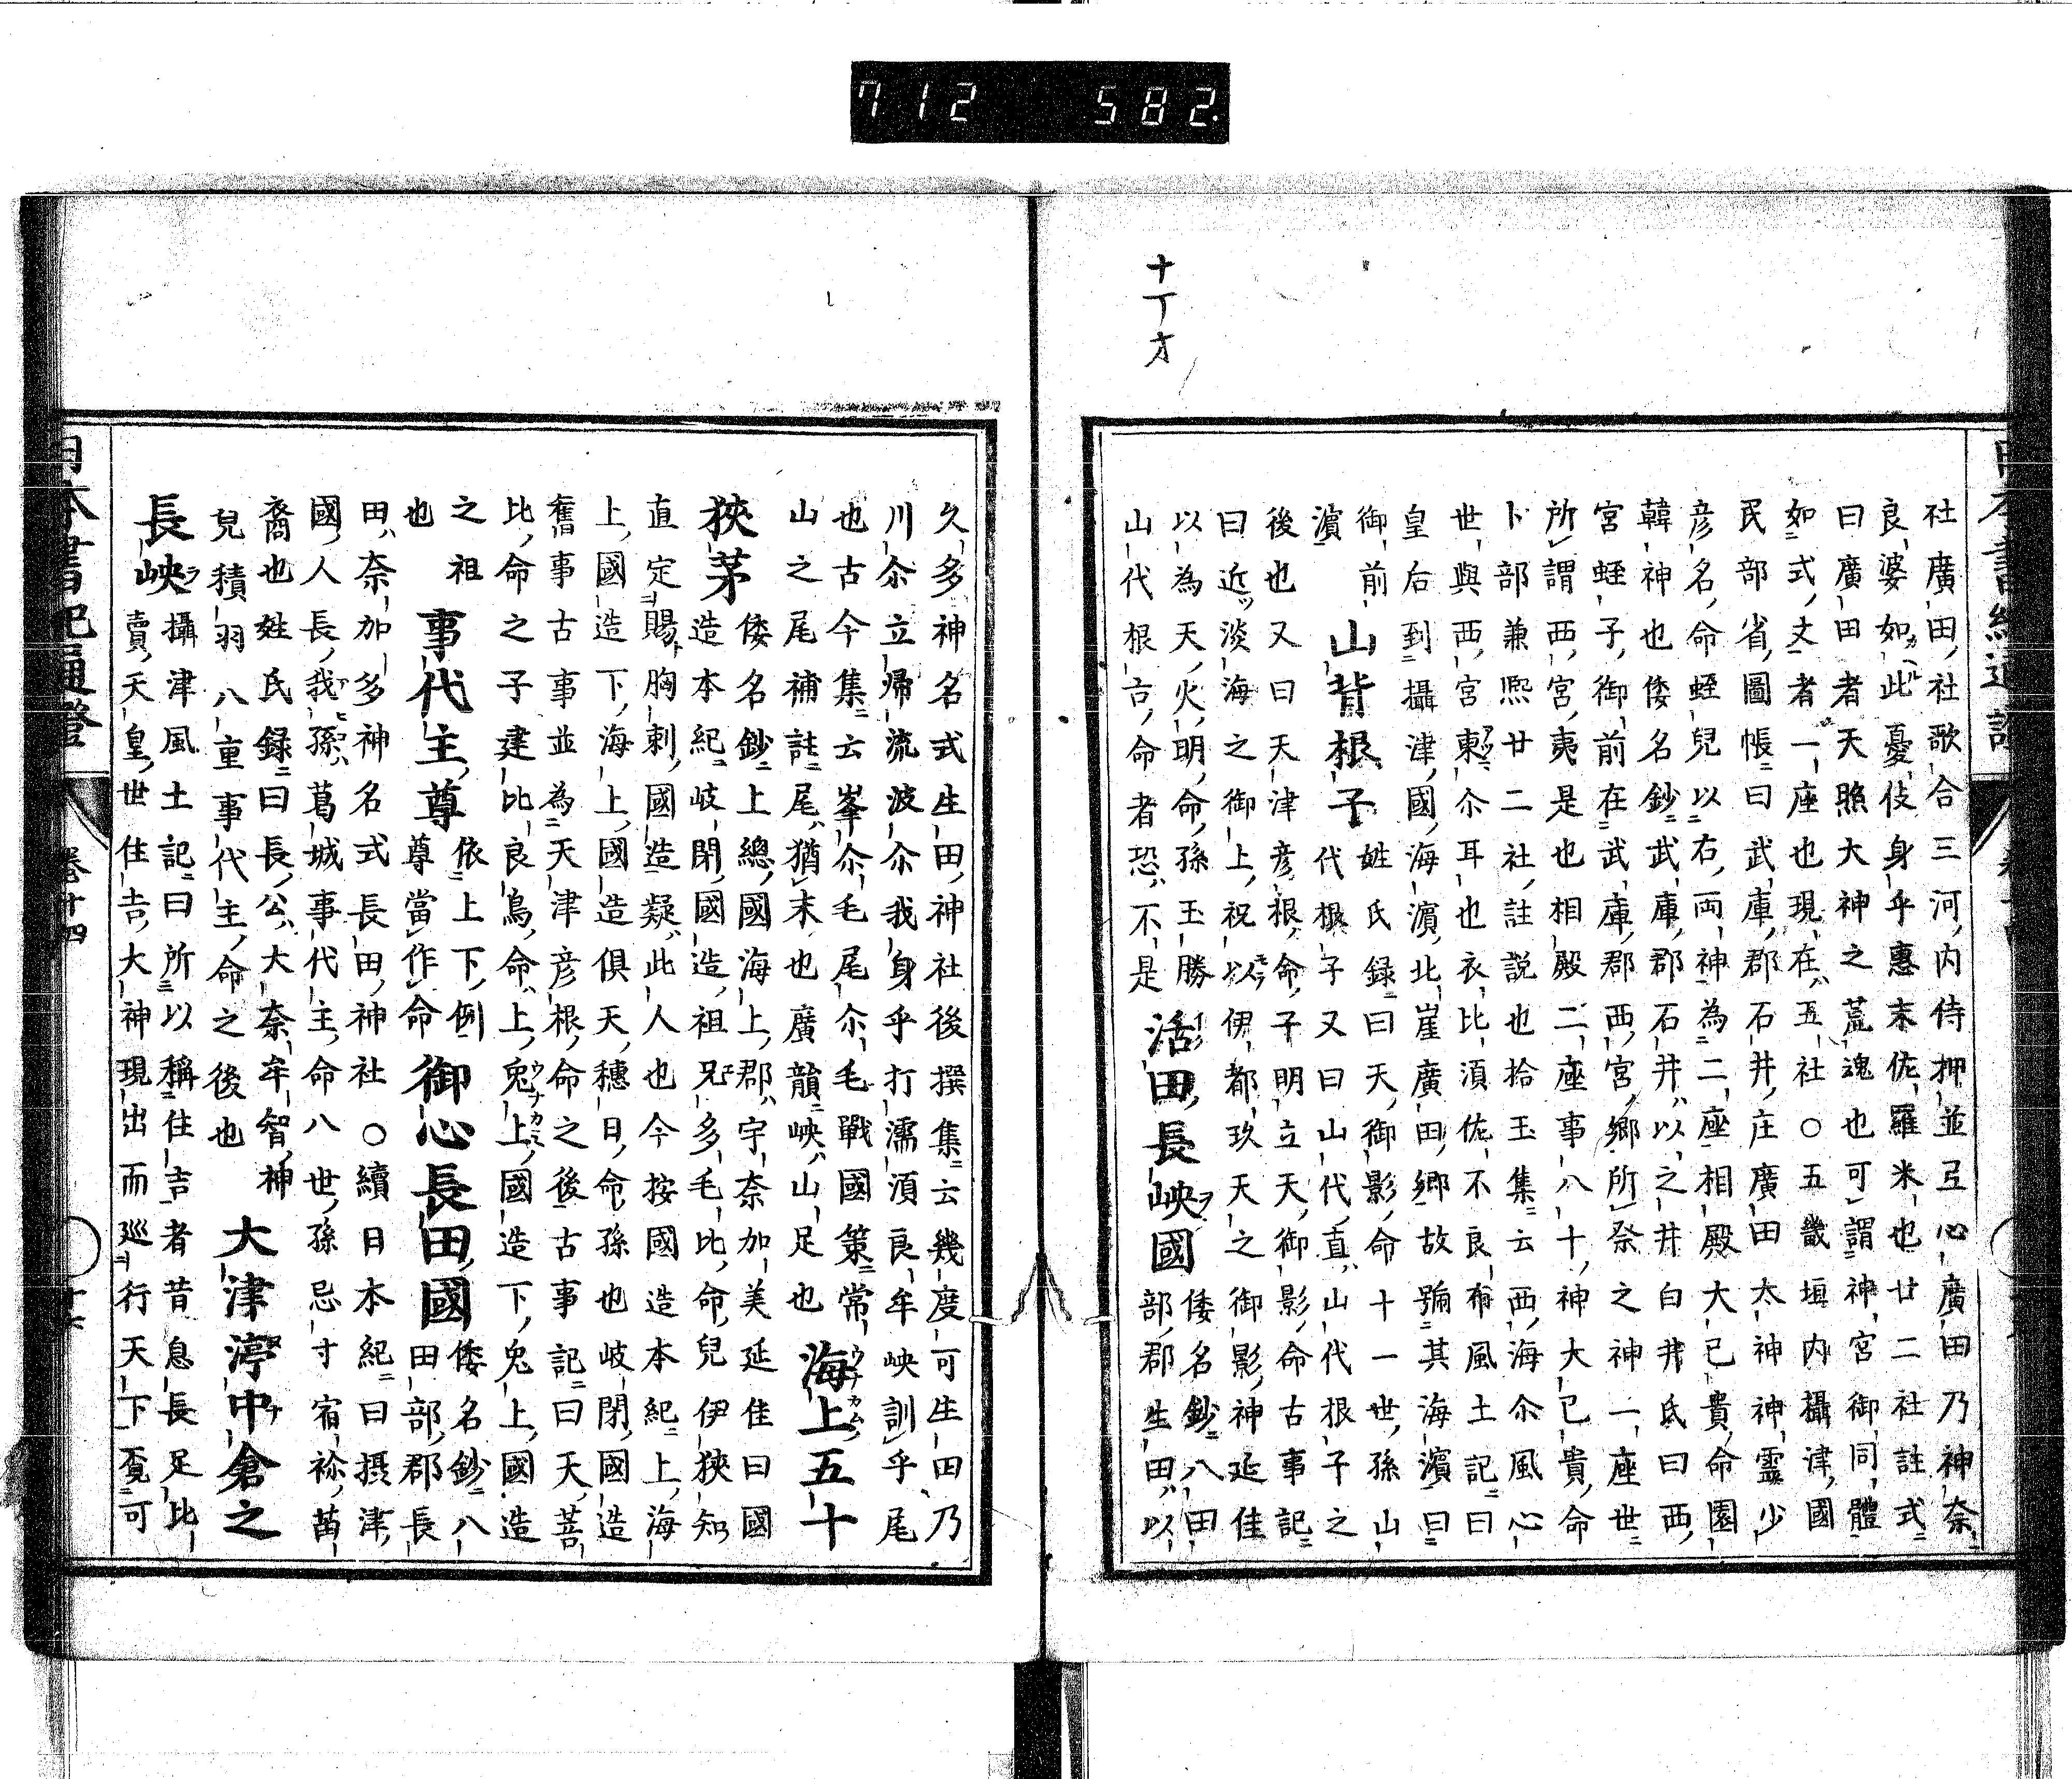 712 582
十丁オ
社廣田社歌合三河内侍押並弖心廣田乃神奈
良婆如此憂伎身乎惠末佐羅米也廿二社註式
曰廣田者天照大神之荒魂也可謂神宮御同體
如式文者一座也現在五社○五畿垣内攝津國
民部省圖帳曰武庫郡石井庄廣田太神神靈少
彦名命蛭兒以右兩神為二座相殿大已貴命園
韓神也倭名鈔武庫郡石井以之井白井氏曰西
宮蛭子御前在武庫郡西宮鄉所祭之神一座世
所謂西宮夷是也相殿二座事八十神大已貴命
卜部兼熈廿二社註説也拾玉集云西海尒風心
世與西宮東尒耳也衣比須佐不良布風土記曰
皇后到攝津國海濵北崖廣田鄉故號其海濵曰
御前濵
山背根子
姓氏録曰天御影命十一世孫山
代根子又曰山代直山代根子之
後也又曰天津彦根命子明立天御影命古事記
曰近淡海之御上祝以伊都玖天之御影神延佳
以為天火明命孫玉勝
山代根古命者恐不是
活田長峽國
倭名鈔八田
部郡生田以
久多神名式生田神社後撰集云幾度可生田乃
川尒立帰流波尒我身乎打濡須良牟峽訓乎尾
也古今集云峯尒毛尾尒毛戰國策常
山之尾補註尾猶末也廣韻峽山足也
海上五十
狹茅
倭名鈔上總國海上郡宇奈加美延佳曰國
造本紀岐閉國造祖兄多毛比命兒伊狹知
直定賜胸刺國造疑此人也今按國造本紀上海
上國造下海上國造俱天穗日命孫也岐閉國造
舊事古事並為天津彦根命之後古事記曰天菩
比命之子建比良鳥命上兎上國造下兎上國造
之祖
也
事代主尊
依上下例
尊當作命
御心長田國
倭名鈔八
田部郡長
田奈加多神名式長田神社○續日本紀曰摂津
國人長我孫葛城事代主命八世孫忌寸宿祢苗
裔也姓氏録曰長公大奈牟智神
兒積羽八重事代主命之後也
大津渟中倉之
長峽
攝津風土記曰所以稱住吉者昔息長足比
賣天皇世住吉大神現出而巡行天下覓可
日本書紀通證
卷十四
十六